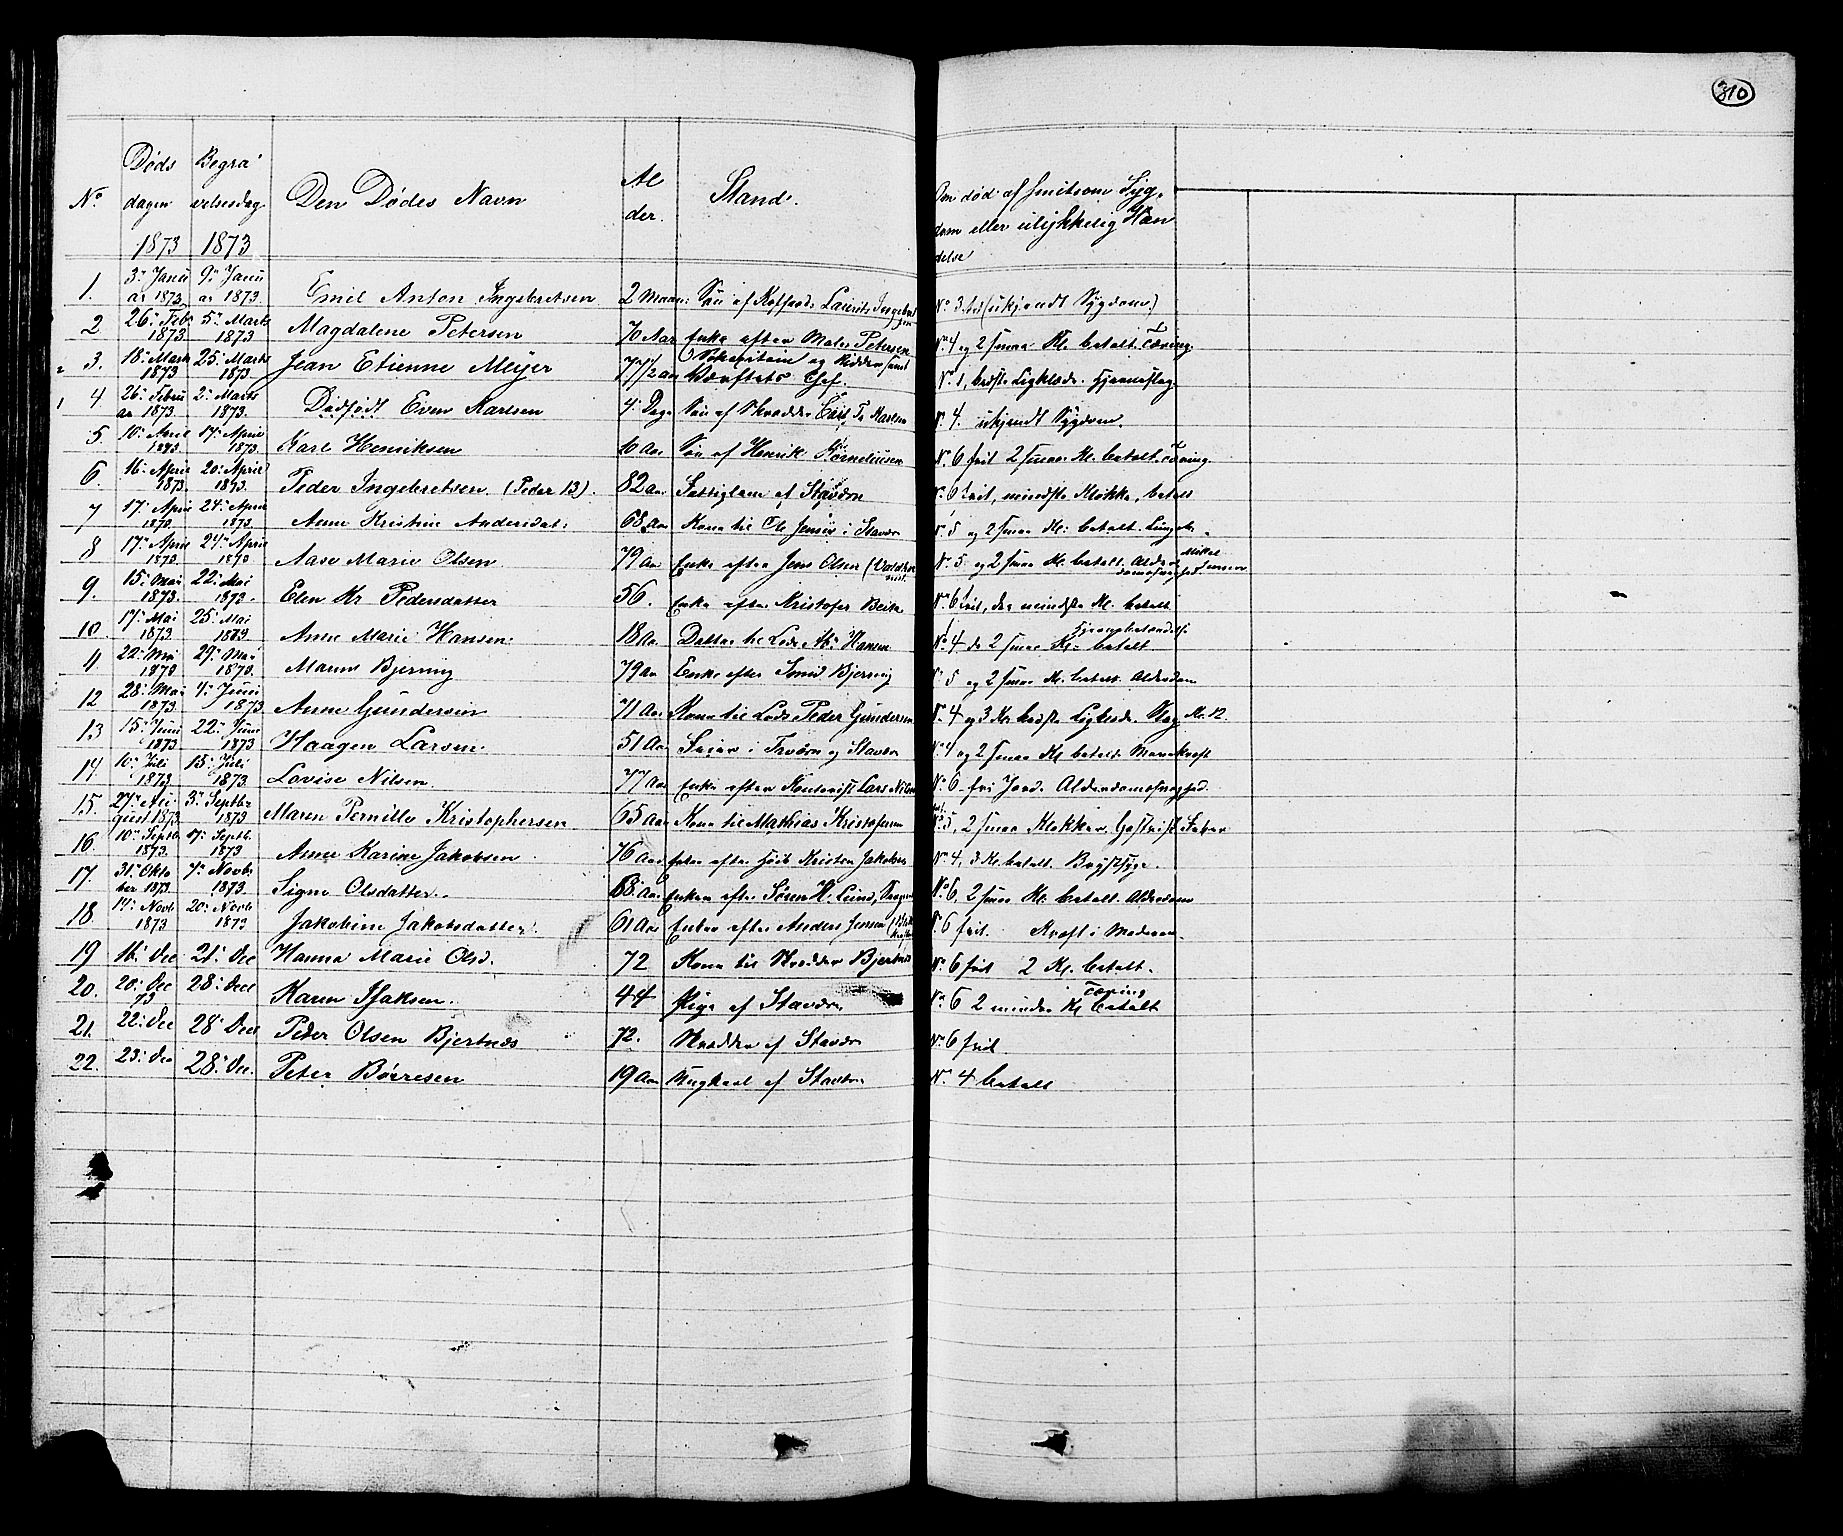 310
No. Døds dagen 1873 Begra velsesdag 1873 Den Dødes Navn Al der. Stand. Om død af smitsom Syg dom eller ulykkelig Hæn delse
1. 3: Janu ar 1873 9: Janu ar 1873. Emil Anton Ingebretsen 2 Maan: Søn af Laurits Ingebret sen No 3 (ukjendt Sygdom.)
2 26: Feb 1873 5: Marts 1873 Magdalene Petersen 70 Aar Enke efter Maler Petersen No 4 og 2 smaa Kl. betalt. Tæring.
3. 18: Mart 1873 25: Marts 1873. Jean Etienne Meyer 77 1/2 aar og Ridder samt Værftets Chef. No 1, bedste Ligklæde. Hjerneslag
4 26: Febru ar 1873. 2: Marts 1873. Dødfødt Even Karlsen 4: Dage Søn af Skrædder Karlsen No 4. ukjendt Sygdom.
5. 10: April 1873. 17: April 1873. Karl Henriksen 10 Aar Søn af Henrik Korneliusen No 6 frit 2 smaa Kl. betalt. Tæring.
6. 16: April 1873. 20: April 1873. Peder Ingebretsen. (Peder 13). 82 aar. Fattiglem af Staværn No 6 frit, mindste Klokke, betalt
7 17: April 1873. 24: April 1873. Anne Kristine Andersdat: 68 Aar Kone til Ole Jensen i Staværn No 5 og 2 smaa Kl: betalt.
8 17: April 1873. 24: April 1873 Aase Marie Olsen 79 Aar Enke efter Jens Olsen No 5 og 2 smaa Kl. betalt. Alder domssvaghed
9. 15: Mai 1873. 22: Mai 1873. Elen Kr Pedersdatter 56. Enke efter Kristofer No 6 frit, den mindste Kl. betalt
10. 17: Mai 1873 25: Mai 1873. Anne Marie Hansen. 18 Aar Datter til Lods Hansen No 4 de 2 smaa Kl. betalt Hjernebetændelse
11 22: Mai 1873 29: Mai 1873. Maren Bjerring 79 Aar Enke efter Smed Bjerring No 5 og 2 smaa Kl. betalt. Alderdom
12 28: Mai 1873. 4: Juni 1873 Anne Gundersen 71 Aar Kone til Lods Peder Gundersen No 4 og 3 Kl. bedste Ligklæde. Slag Kl. 12.
13 15: Juni 1873 22: Juni 1873 Haagen Larsen. 51 Aar i og Staværn No 4 og 2 smaa Kl betalt Mavekræft
14. 10: Juli 1873 15: Juli 1873. Lovise Nilsen. 77 Aar Enke efter Kontorist Lars Nilsen No 6 fri Jord. Alderdomssvaghed.
15. 27: Au gust 1873 3: Septbr 1873 Maren Pernille Kristophersen 65 Aar Kone til Mathias Kristofersen No 5, 2 smaa Klokker, Gastrisk Feber
16. 10: Septb. 1873. 17: Septb. 1873 Anne Karine Jakobsen 76 Aar Enke efter Kristen Jakobsen No 4, 3 Kl. betalt. Brystsyge.
17. 31: Okto ber 1873 7: Novbr 1873. Signe Olsdatter. 68 Aar Enke efter Søren H. Lund, No 6, 2 smaa Kl. betalt. Alderdom
18 14: Novb 1873 20: Novb 1873 Jakobine Jakobsdatter. 61 Aar Enke efter Anders Jensen No 6 frit. Kræft i Moderen.
19 16: Dec 21: Dec Hanna Marie Olsd. 72 Kone til Skrædder Bjertnæs No 6 frit 2 Kl. betalt.
20. 20: Dec 73 28: Dec Karen Isaksen. 44 Pige af Staværn No 6 2 mindre Kl betalt Tæring
21. 22: Dec 28: Dec Peder Olsen Bjertnæs 72. Skrædder af Staværn No 6 frit.
22. 23: Dec 28: Dec. Peter Børresen 19 Aar Ungkarl af Staværn No 4 betalt